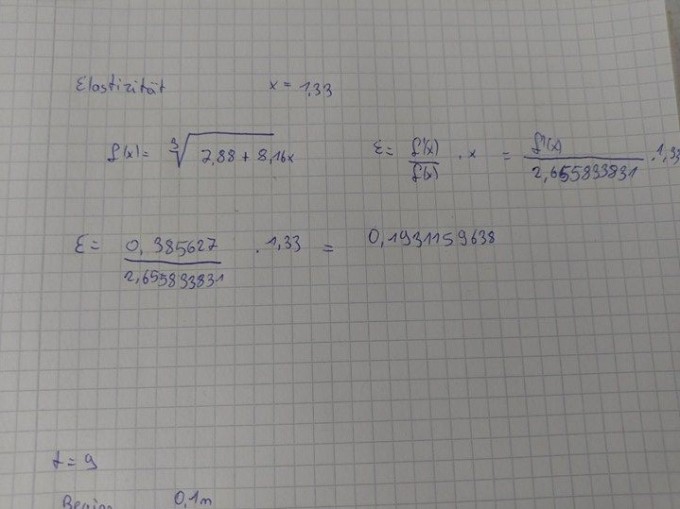 Elastizität x = 1,33
f(x) = ∛(7,88 + 8,16x) ε = f'(x)/f(x) · x = f'(x)/2,655833831 · 1,33
ε = 0,385627/2,655833831 · 1,33 = 0,1931159638
t = 9
Beginn 0,1m